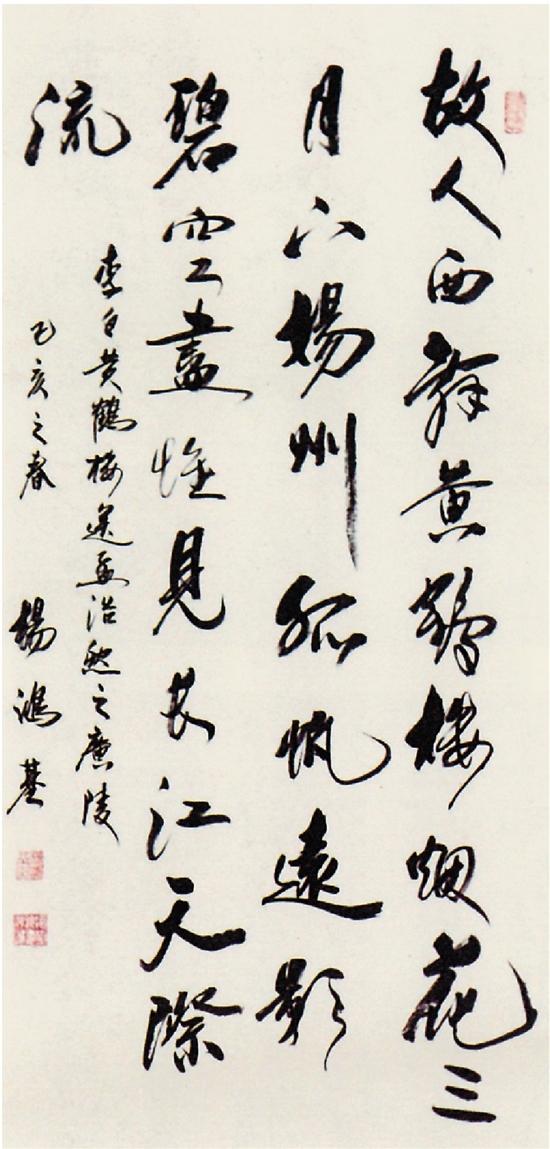 故人西辭黄鶴樓烟花三
月下揚州孤帆遠影
碧空盡惟見長江天際
流
李白黄鶴樓送孟浩然之廣陵
乙亥之春 楊鴻基